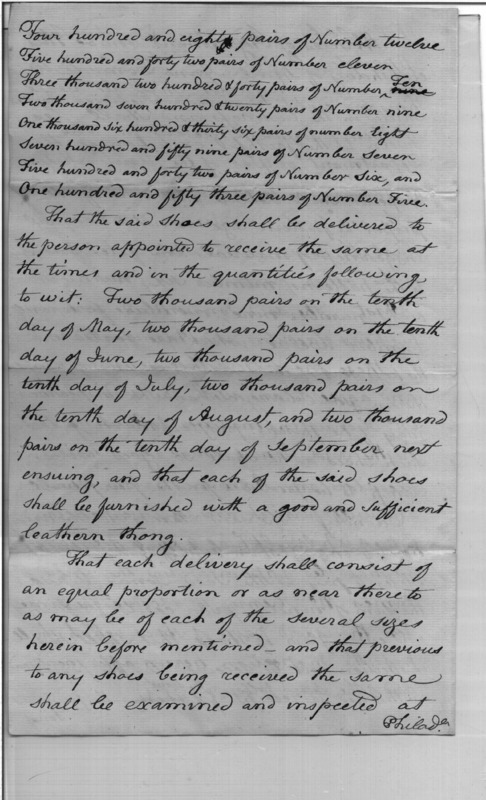 Four hundred and eighty pairs of Number twelve
Five hundred and forty two pairs of Number eleven
Three thousand two hundred & forty pairs of Number, Ten nine
Two thousand seven hundred & twenty pairs of Number nine
One thousand six hundred & thirty six pairs of number Eight
Seven hundred and fifty nine pairs of Number Seven
Five hundred and forty two pairs of Number Six, and
One hundred and fifty three pairs of Number Five.
That the said shoes shall be delivered to
the person appointed to receive the same at
the times and in the quantities following,
to wit: Two thousand pairs on the tenth
day of May, two thousand pairs on the tenth
day of June, two thousand pairs on the
tenth day of July, two thousand pairs on
the tenth day of August, and two thousand
pairs on the tenth day of September next
ensuing, and that each of the said shoes
shall be furnished with a good and sufficient
leathern thong.
That each delivery shall consist of
an equal proportion or as near thereto
as may be of each of the several sizes
herein before mentioned - and that previous
to any shoes being received the same
shall be examined and inspected at
Philada.